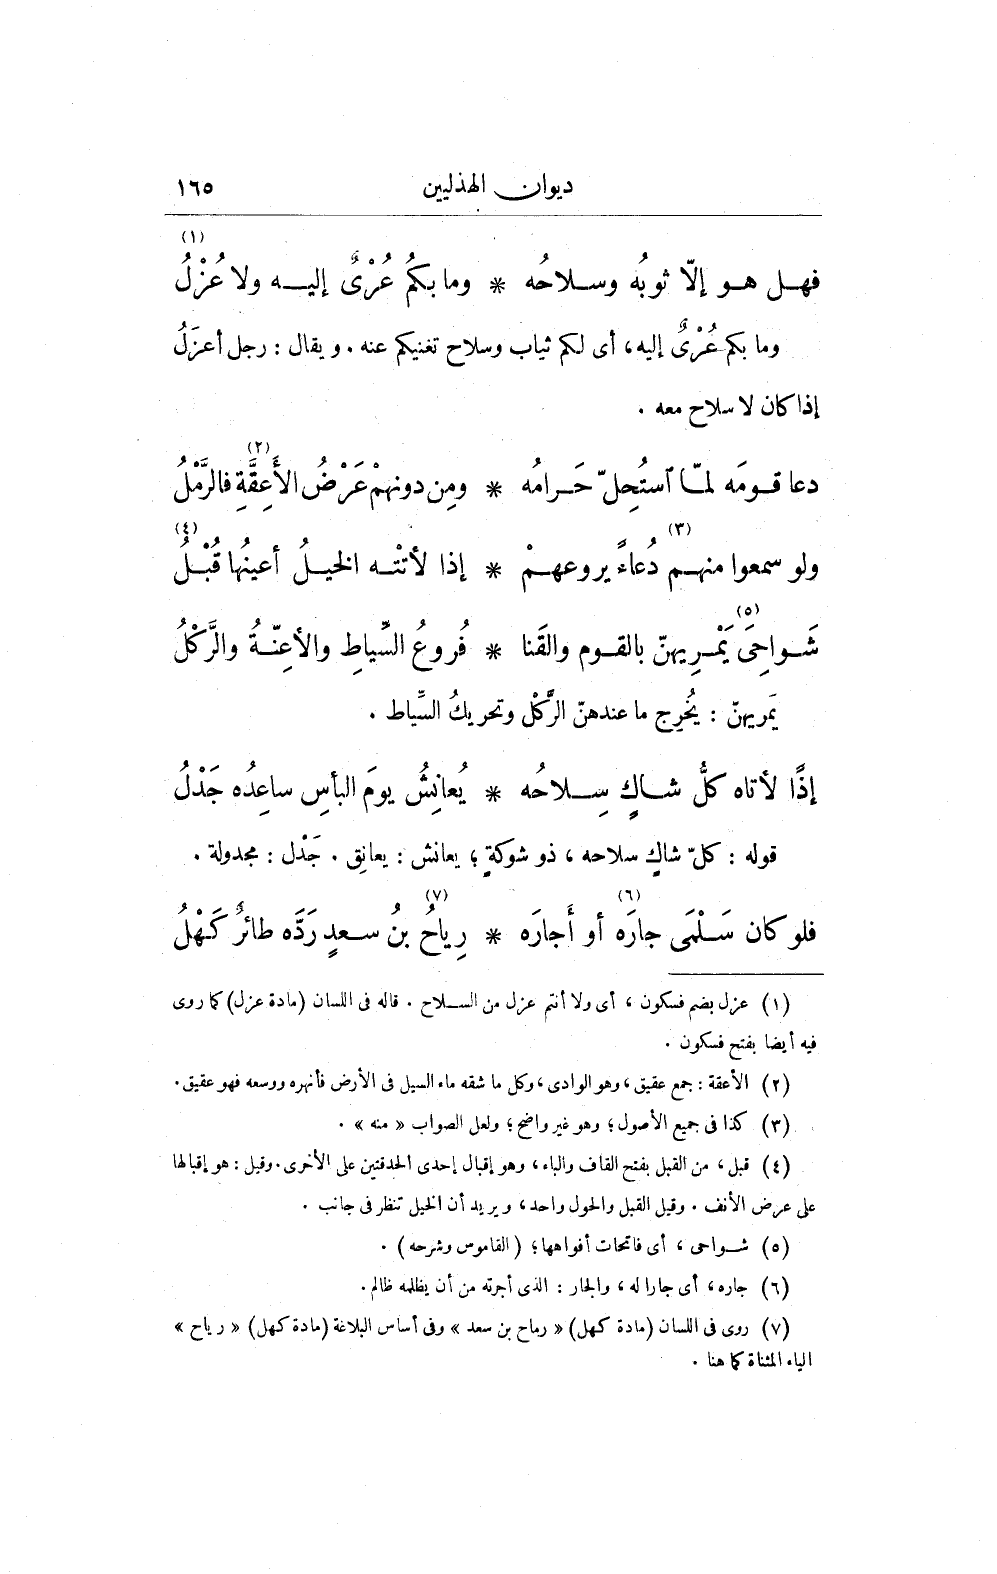 ديوان الهذليين ١٦٥
(١)
فهل هو إلّا ثوبُه وسلاحُه * وما بكمُ عُرْىٌ إليه ولا عُزْلُ
وما بكم عُرْىٌ إليه، أى لكم ثياب وسلاح تغنيكم عنه . ويقال : رجل أعزَلُ
إذا كان لا سلاح معه .
(٢)
دعا قومَه لمّا ٱستُحِلّ حَرامُه * ومِن دونهمْ عَرْضُ الأَعِقَّةِ فالرَّمْلُ
(٣) (٤)
ولو سمعوا منهم دُعاءً يروعهمْ * إذا لأتتْه الخيلُ أعينُها قُبْلُ
(٥)
شَواحِىَ يَمْرِيهنّ بالقوم والقَنا * فُروعُ السِّياطِ والأعِنّةُ والرَّكْلُ
يَمريهنّ : يُخرِج ما عندهنّ الرَّكْل وتحريكُ السِّياط .
إذًا لأتاه كلُّ شاكٍ سِلاحُه * يُعانِشُ يومَ البأسِ ساعِدُه جَدْلُ
قوله : كلّ شاكٍ سلاحه ، ذو شوكةٍ ؛ يعانش : يعانِق . جَدْل : مجدولة .
(٦) (٧)
فلو كان سَلْمَى جارَه أو أَجارَه * رِياحُ بنُ سعدٍ رَدَّه طائرٌ كَهْلُ
(١) عزل بضم فسكون ، أى ولا أنتم عزل من السلاح . قاله فى اللسان (مادة عزل) كما روى
فيه أيضا بفتح فسكون .
(٢) الأعقة : جمع عقيق ، وهو الوادى ، وكل ما شقه ماء السيل فى الأرض فأنهره ووسعه فهو عقيق .
(٣) كذا فى جميع الأصول ؛ وهو غير واضح ؛ ولعل الصواب « منه » .
(٤) قبل ، من القبل بفتح القاف والباء ، وهو إقبال إحدى الحدقتين على الأخرى . وقيل : هو إقبالها
على عرض الأنف . وقيل القبل والحول واحد ، ويريد أن الخيل تنظر فى جانب .
(٥) شواحى ، أى فاتحات أفواهها ؛ ( القاموس وشرحه ) .
(٦) جاره ، أى جارا له ، والجار : الذى أجرته من أن يظلمه ظالم .
(٧) روى فى اللسان (مادة كهل) « رماح بن سعد » وفى أساس البلاغة (مادة كهل) « رياح »
الياء المثناة كما هنا .